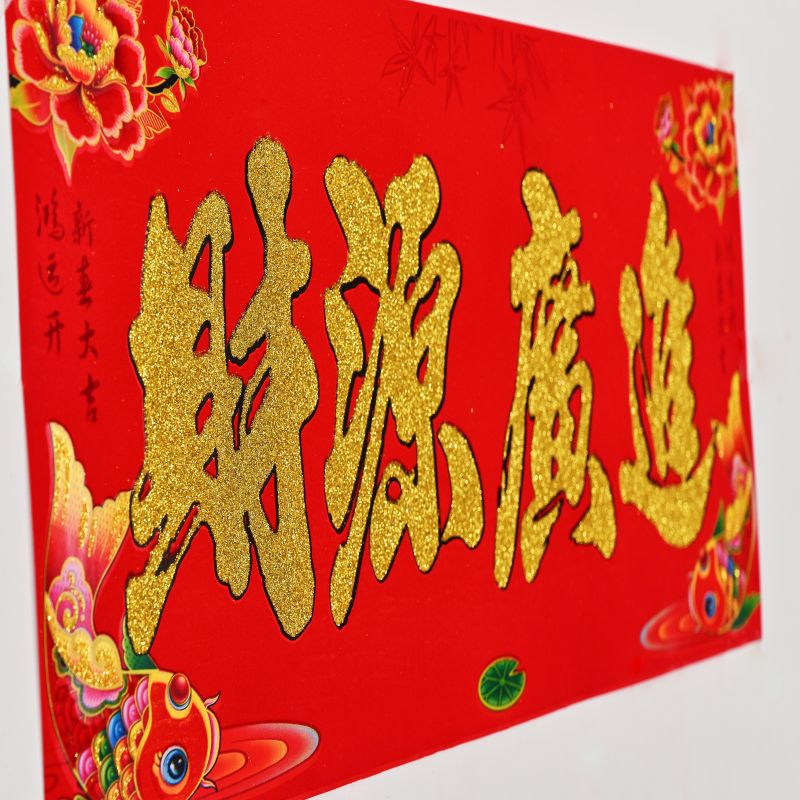 財源廣進
新春大吉
鴻运开